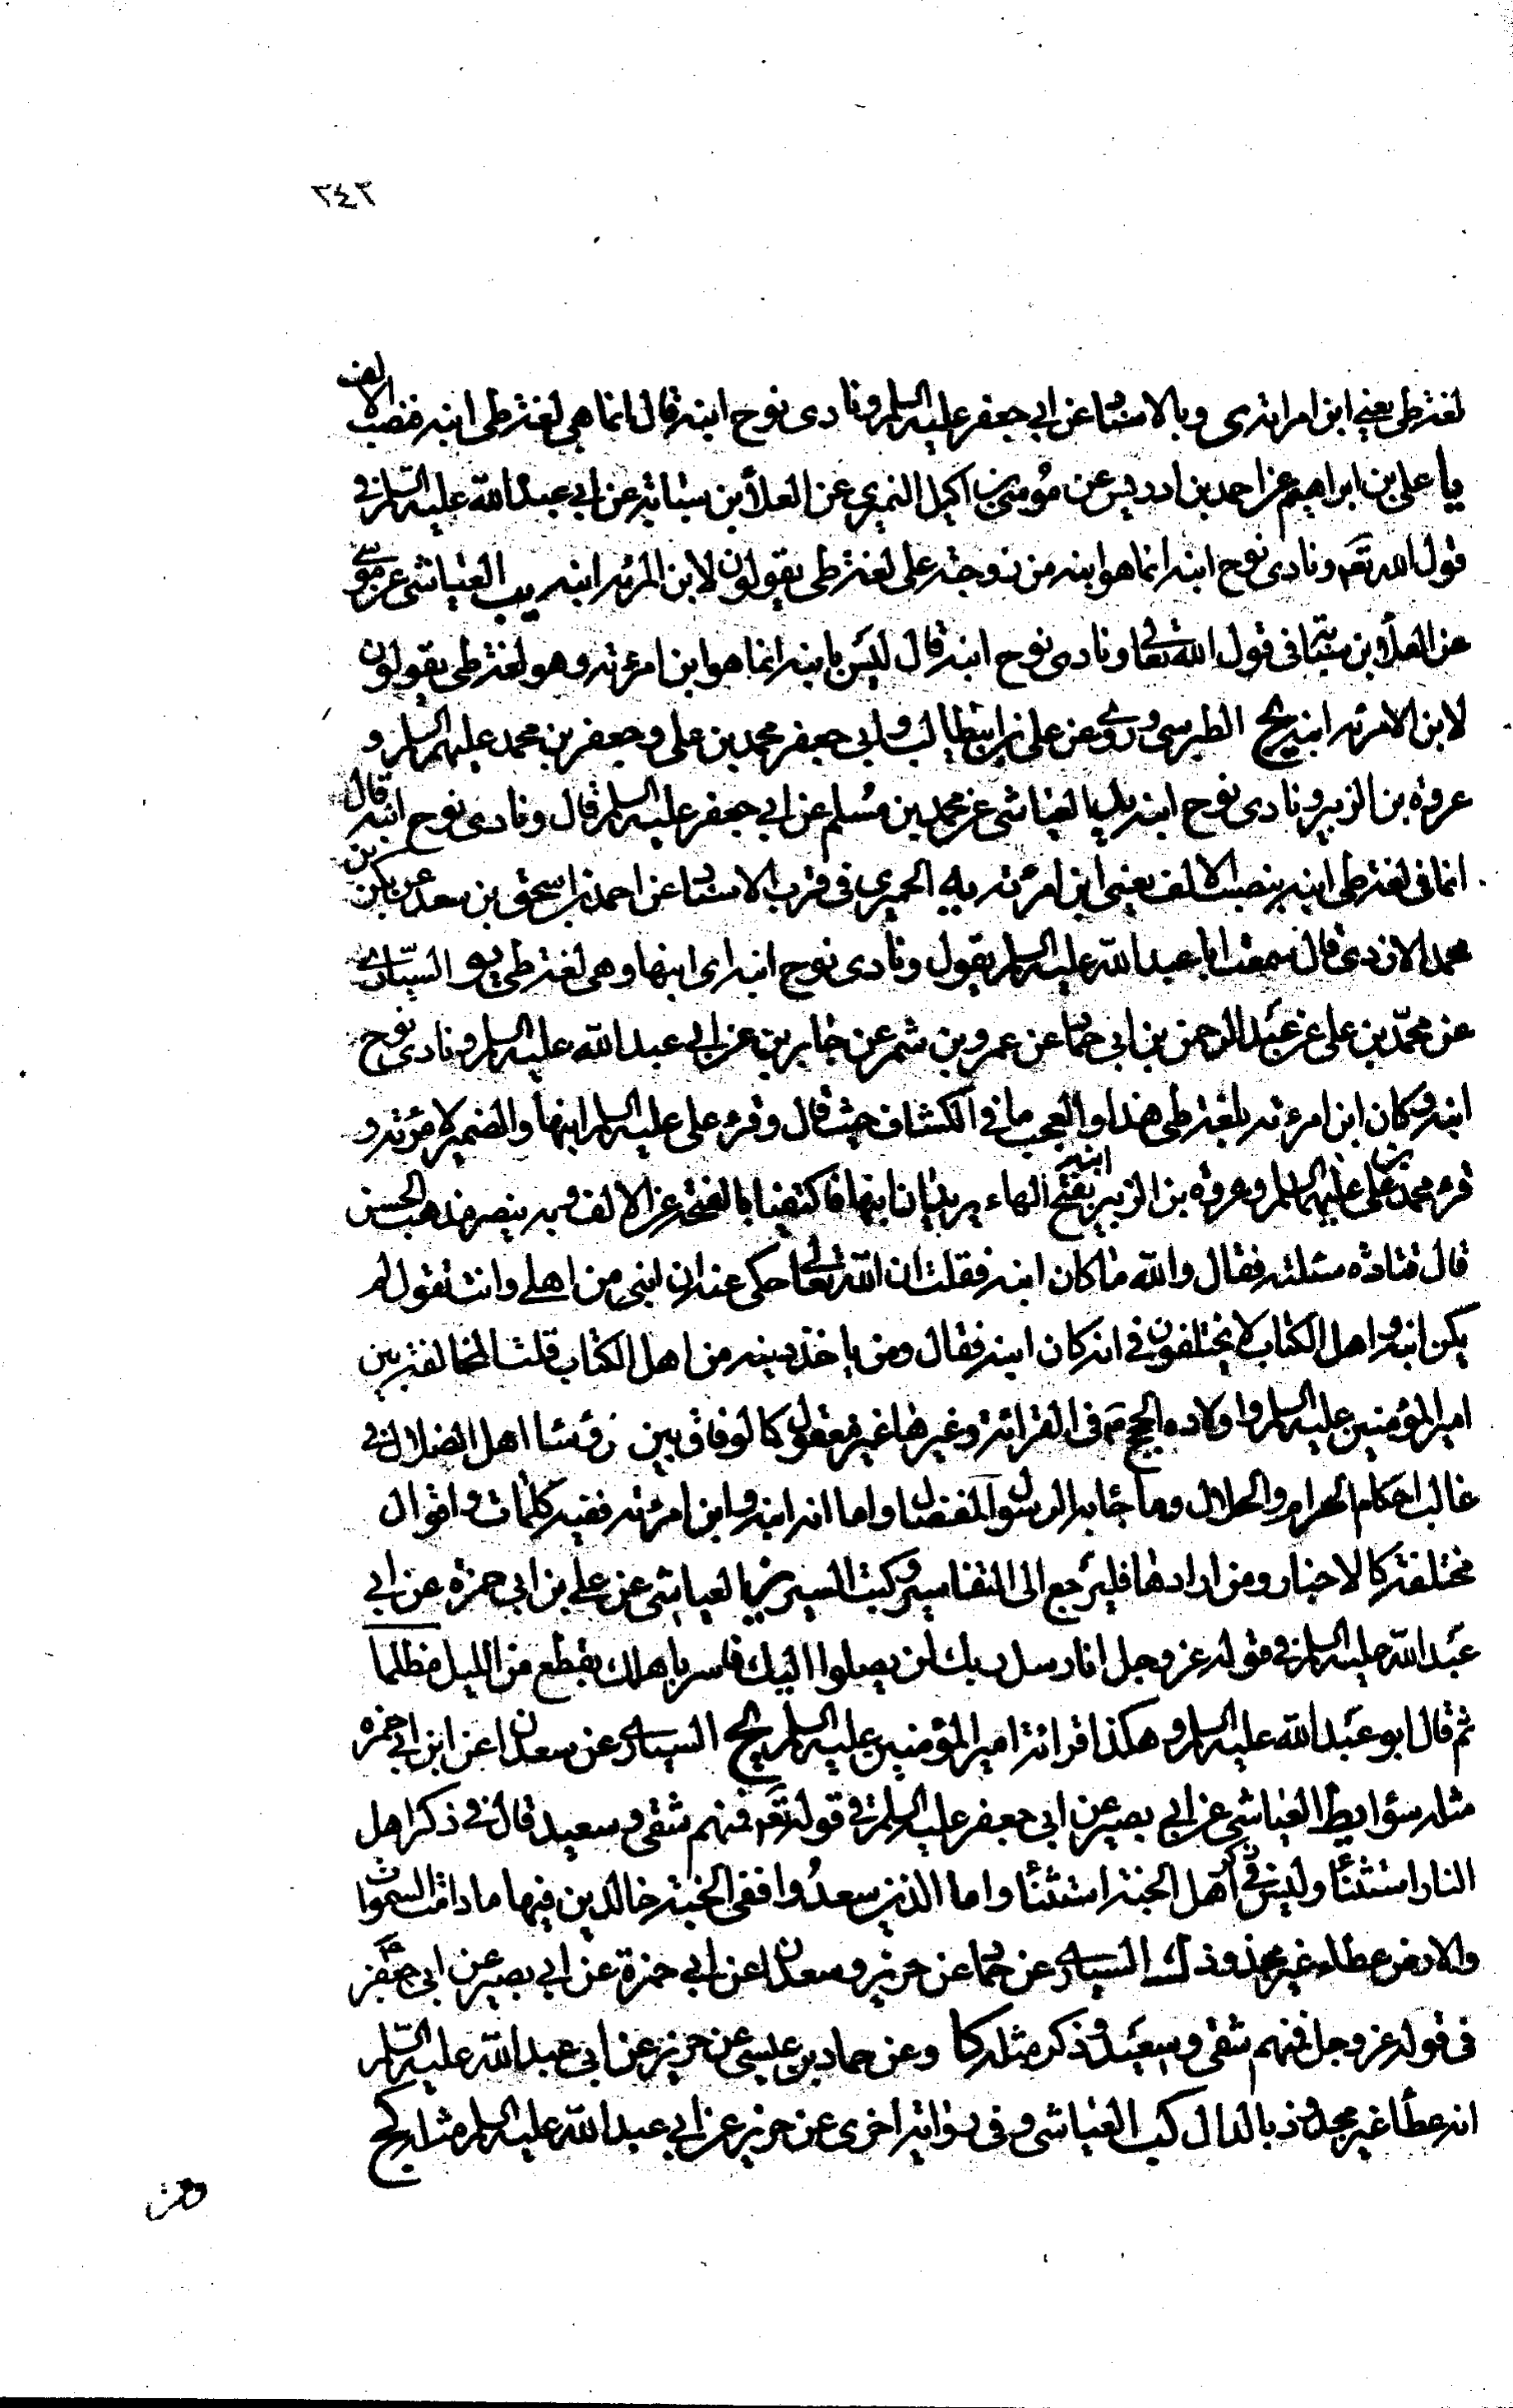 ٢٤٢
لغة طى يعنى ابن امراته ى وبالاسناد عن ابى جعفر عليه السلم ونادى نوح ابنه قال انما هى لغة طى ابنه فنصب الالف
يا على بن ابراهيم عن احمد بن ادريس عن موسى بن اكيل النميرى عن العلا بن سيابة عن ابى عبد الله عليه السلم فى
قول الله تعم ونادى نوح ابنه انما هو ابنه من زوجته على لغة طى يقولون لابن المرئه ابنه يب العياشى عن موسى
عن العلاء بن سيابة فى قول الله تعالى ونادى نوح ابنه قال ليس بابنه انما هو ابن امرئته وهو لغة طى يقولون
لابن الامرئه ابنه يج الطبرسى وروى عن على بن ابيطالب وابى جعفر محمد بن على وجعفر بن محمد عليهم السلم و
عروة بن الزبير ونادى نوح ابنه يد العياشى عن محمد بن مسلم عن ابى جعفر عليه السلم قال ونادى نوح ابنه قال
انما فى لغة طى ابنه بنصب الالف يعنى ابن امرئته يه الحميرى فى قرب الاسناد عن احمد بن اسحق بن سعد عن بكر بن
محمد الازدى قال سمعت ابا عبد الله عليه السلم يقول ونادى نوح ابنه اى ابنها وهى لغة طى يو السيارى
عن محمد بن على عن عبد الرحمن بن ابى حماد عن عمرو بن شمر عن جابر بن عن ابى عبد الله عليه السلم ونادى نوح
ابنه وكان ابن امرئته بلغة طى هذا والعجب ما فى الكشاف حيث قال وقرء على عليه السلم ابنها والضمير لامرئته و
قرء محمد بن على عليهما السلم وعروة بن الزبير ابنه بفتح الهاء يريدان ابنها فاكتفينا بالفتحة عن الالف وبه ينصر مذهب الحسن
قال قتادة سئلته فقال والله ما كان ابنه فقلت ان الله تعالى حكى عنه ان ابنى من اهلى وانت تقول لم
يكن ابنه واهل الكتاب لا يختلفون فى انه كان ابنه فقال ومن ياخذ دينه من اهل الكتاب قلت المخالفة بين
امير المؤمنين عليه السلم واولاده الحجج ع فى القرائة وغيرها غير معقول كالوفاق بين رؤسا اهل الضلال فى
غالب احكام الحرام والحلال وما جاء به الرسول المفضال واما انه ابنه وابن امرئته ففيه كلمات واقوال
مختلفة كالاخبار ومن ارادها فليرجع الى التفاسير وكتب السير يز العياشى عن على بن ابى حمزة عن ابى
عبد الله عليه السلم فى قوله عز وجل انا رسل ربك لن يصلوا اليك فاسر باهلك بقطع من الليل مظلما
ثم قال ابو عبد الله عليه السلم وهكذا قرائة امير المؤمنين عليه السلم يح السيارى عن سعدان عن ابن ابى حمزه
مثله سؤا يط العياشى عن ابى بصير عن ابى جعفر عليه السلم فى قوله تعم فمنهم شقى وسعيد قال فى ذكر اهل
النار استثناء وليس فى ذكر اهل الجنة استثناء واما الذين سعدوا ففى الجنة خالدين فيها ما دامت السموات
والارض عطاء غير مجذوذ ك السيارى عن حماد عن حريز وسعدان عن ابى حمزة عن ابى بصير عن ابى جعفر
فى قوله عز وجل فمنهم شقى وسعيد وذكر مثله كا وعن حماد بن عيسى عن حريز عن ابى عبد الله عليه السلم
انه عطاء غير مجدوذ بالدال كب العياشى وفى رواية اخرى عن حريز عن ابى عبد الله عليه السلم مثله كج
وعن